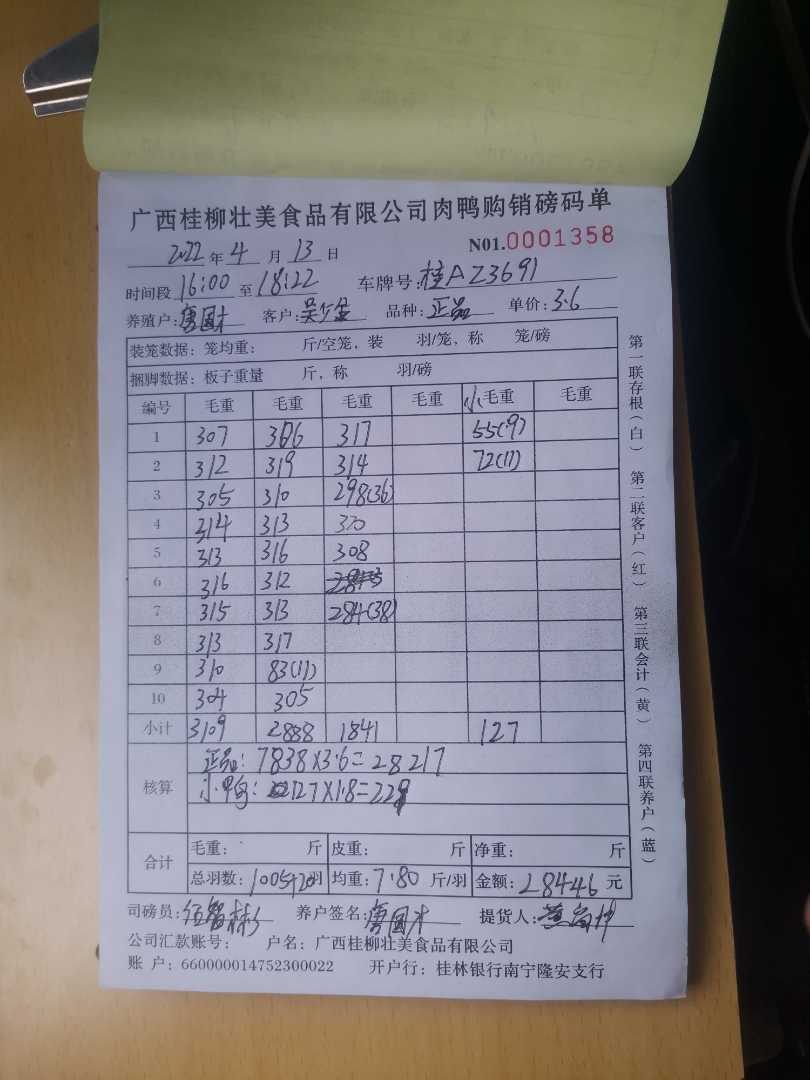 广西桂柳壮美食品有限公司肉鸭购销磅码单
2022 年 4 月 13 日 N01.0001358
时间段 16:00 至 18:22 车牌号:桂AZ3691
养殖户:唐国才 客户: 品种:正品 单价:3.6
装笼数据:笼均重: 斤/空笼,装 羽/笼,称 笼/磅
捆脚数据:板子重量 斤,称 羽/磅
编号 毛重 毛重 毛重 毛重 小毛重 毛重
1 307 306 317 55(9)
2 312 319 314 72(11)
3 305 310 298(36)
4 314 313 320
5 313 316 308
6 316 312
7 315 313 284(38)
8 313 317
9 310 83(11)
10 304 305
小计 3109 2888 1841 127
核算 正品: 7838X3.6=28217
小鸭: 127X1.8=229
合计 毛重: 斤 皮重: 斤 净重: 斤
总羽数:1005+20羽 均重:7.80 斤/羽 金额:28446 元
司磅员: 养户签名:唐国才 提货人:
公司汇款账号: 户名:广西桂柳壮美食品有限公司
账 户:660000014752300022 开户行:桂林银行南宁隆安支行
第一联存根(白) 第二联客户(红) 第三联会计(黄) 第四联养户(蓝)